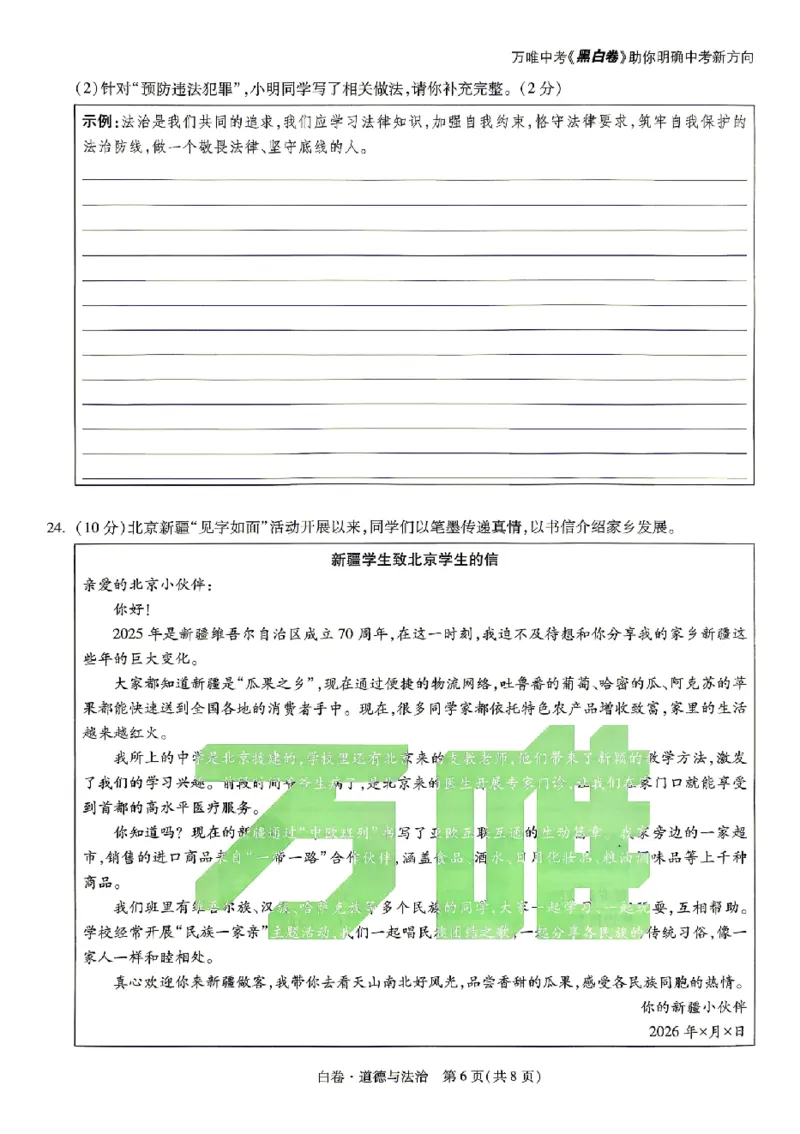 万唯中考《黑白卷》助你明确中考新方向
(2)针对“预防违法犯罪”,小明同学写了相关做法,请你补充完整。(2分)
示例:法治是我们共同的追求,我们应学习法律知识,加强自我约束,恪守法律要求,筑牢自我保护的
法治防线,做一个敬畏法律、坚守底线的人。
24. (10分)北京新疆“见字如面”活动开展以来,同学们以笔墨传递真情,以书信介绍家乡发展。
新疆学生致北京学生的信
亲爱的北京小伙伴:
你好!
2025年是新疆维吾尔自治区成立70周年,在这一时刻,我迫不及待想和你分享我的家乡新疆这
些年的巨大变化。
大家都知道新疆是“瓜果之乡”,现在通过便捷的物流网络,吐鲁番的葡萄、哈密的瓜、阿克苏的苹
果都能快速送到全国各地的消费者手中。现在,很多同学家都依托特色农产品增收致富,家里的生活
越来越红火。
我所上的中学是北京援建的,学校里还有北京来的支教老师,他们带来了新颖的教学方法,激发
了我们的学习兴趣。前段时间爷爷生病了,是北京来的医生开展专家门诊,让我们在家门口就能享受
到首都的高水平医疗服务。
你知道吗?现在的新疆通过“中欧班列”书写了亚欧互联互通的生动篇章。我家旁边的一家超
市,销售的进口商品来自“一带一路”合作伙伴,涵盖食品、酒水、日用化妆品、粮油调味品等上千种
商品。
我们班里有维吾尔族、汉族、哈萨克族等多个民族的同学,大家一起学习、一起玩耍,互相帮助。
学校经常开展“民族一家亲”主题活动,我们一起唱民族团结之歌,一起分享各民族的传统习俗,像一
家人一样和睦相处。
真心欢迎你来新疆做客,我带你去看天山南北好风光,品尝香甜的瓜果,感受各民族同胞的热情。
你的新疆小伙伴
2026年×月×日
万唯
白卷·道德与法治 第6页(共8页)